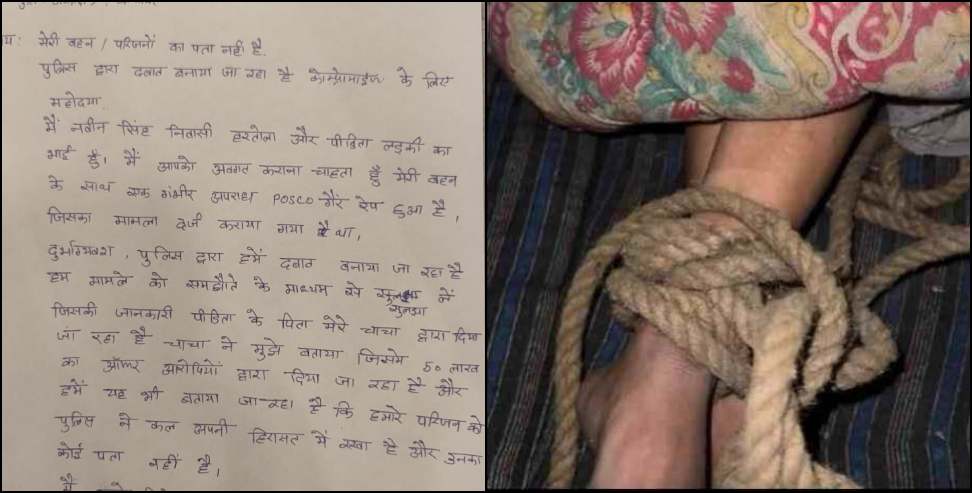 मेरी बहन / परिजनों का पता नहीं है.
पुलिस द्वारा दबाव बनाया जा रहा है कोम्प्रोमाइज के लिए
महोदया
मैं नवीन सिंह निवासी हरतोला और पीडिता लड़की का
भाई हूँ। मैं आपको अवगत कराना चाहता हूँ मेरी बहन
के साथ एक गंभीर अपराध POSCO गैंर रेप हुआ है,
जिसका मामला दर्ज कराया गया है था,
दुर्भाग्यवश, पुलिस द्वारा हमें दबाव बनाया जा रहा है
हम मामले को समझौते के माध्यम से सुलझा लें
जिसकी जानकारी पीडिता के पिता मेरे चाचा द्वारा दिया
जा रहा है चाचा ने मुझे बताया जिसमे 50 लाख
का ऑफर आरोपियों द्वारा दिया जा रहा है और
हमें यह भी बताया जा रहा है कि हमारे परिजन को
पुलिस ने कल अपनी हिरासत में रखा है और उनका
कोई पता नहीं है,
मैं